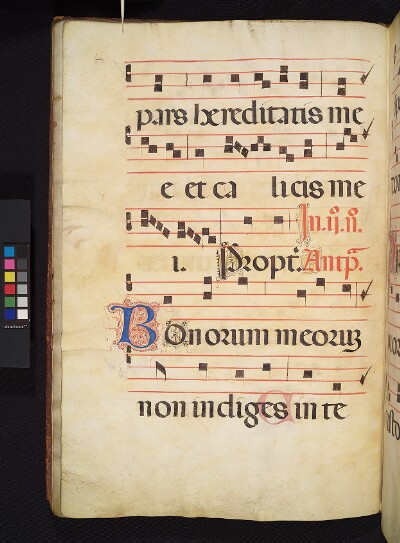 pars hereditatis me
e et ca licis me
In.ij.n̄.
i. Propt̄. Antp̄.
Bonorum meorum
non indiges in te